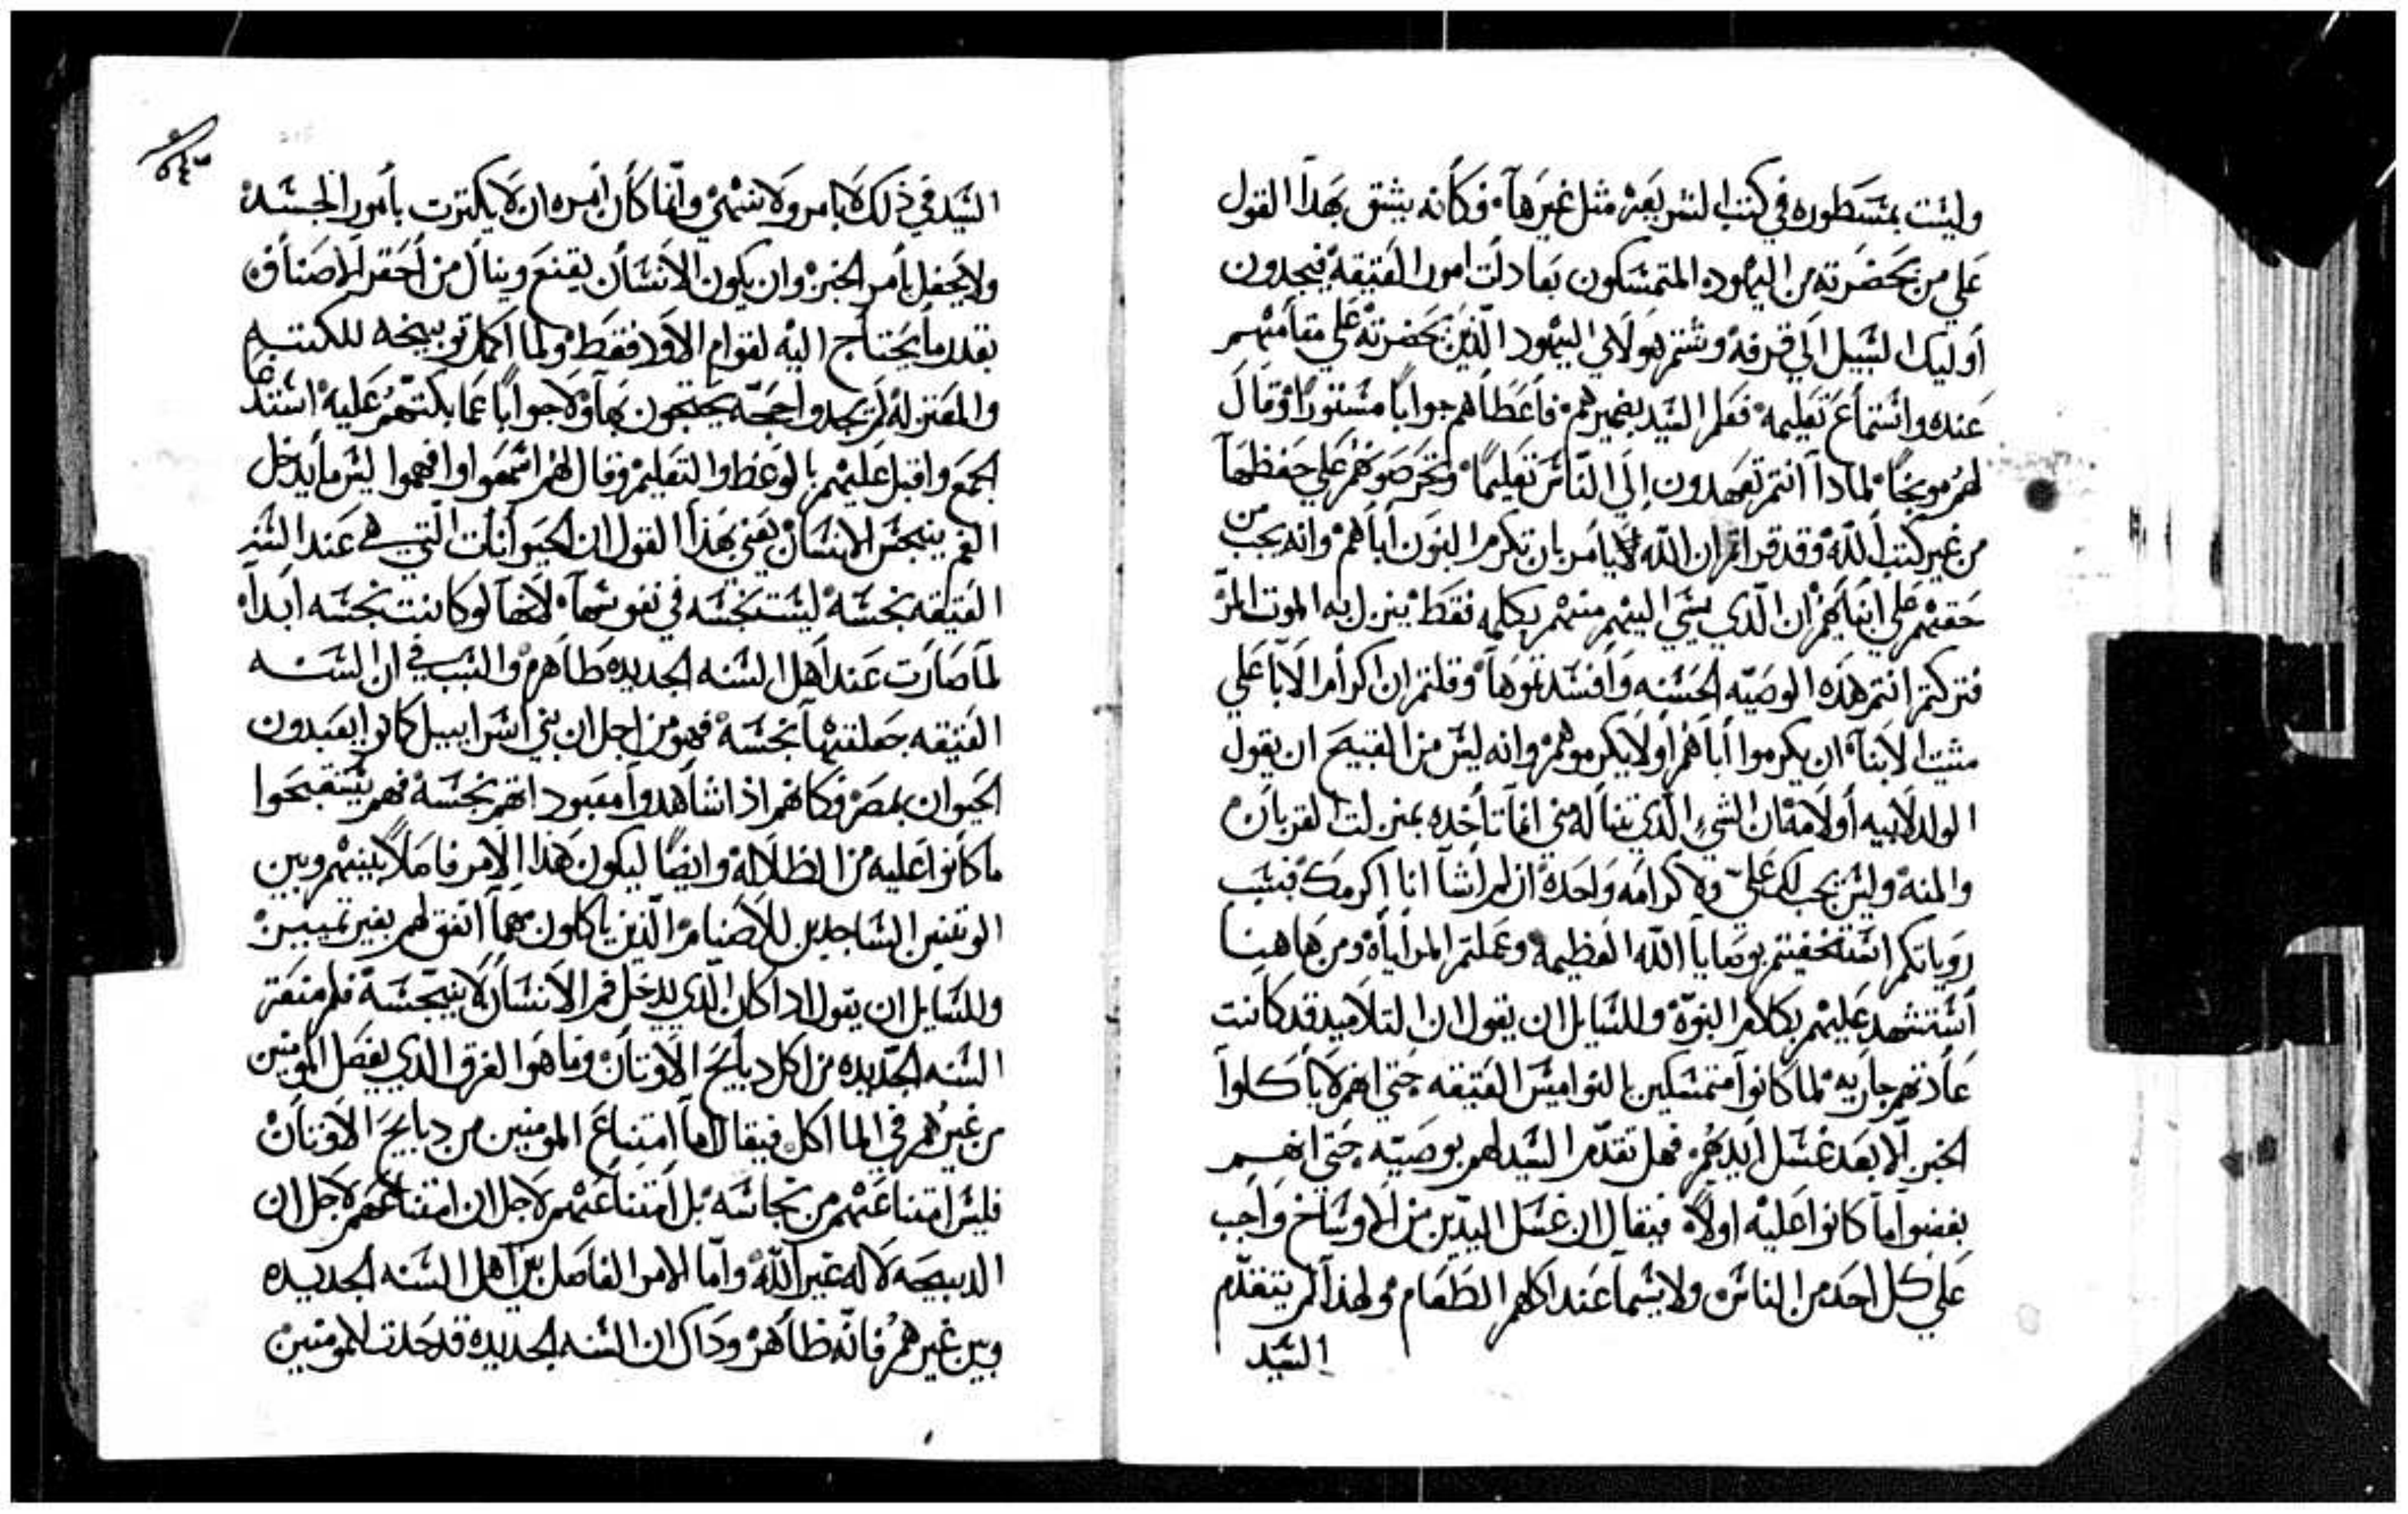 وليست بمسطوره في كتب الشريعة مثل غيرها وكانه يشق بهدا القول
علي من بحضرته من اليهود المتمسكون بعادات امور العتيقة فيجدون
أوليك السبيل الي قرفه وشتم هولاي اليهود الذين بحضرته علي مقامهم
عنده واستماع تعليمه فعلم السيد بضميرهم فاعطاهم جواباً مستوراً وقال
لهم موبخاً لمادا انتم تعهدون إلي الناس تعليماً وتحرصوهم علي حفظها
من غير كتب الله وقد قراتم ان الله لايامر بان تكرم البنون أباهم وانه يجب من
حقهم علي ابنايهم ان الذي يسي اليهم منهم بكلمه فقط ينزل به الموت المر
فتركتم انتم هذه الوصيه الحسنه وافسدتموها وقلتم ان اكرام الابا علي
مشيت الابنا ان يكرموا أباهم أو لايكرموهم وانه ليس من القبيح ان يقول
الولد لابيه أو لامه ان الشي الذي تناله مني انما تاخده بمنزلت القربان
والمنه وليس يجب لك علي ولا كرامه واحدة ان لم اشا انا اكرمك فبسبب
روياتكم استخفيتم بوصايا الله العظيمه وعملتم المراياه ومن هاهنا
أستشهد عليهم بكلام النبوة وللسايل ان يقول ان التلاميد قد كانت
عادتهم جاريه لما كانوا متمسكين بالنواميس العتيقه حتي انهم لاياكلوا
الخبز الا بعد غسل ايديهم فهل تقدم السيد لهم بوصيه حتي انهم
بغضوا ما كانوا عليه اولاً فيقال ان غسل اليدين من الاوساخ واجب
علي كل احد من الناس ولا يسما عند اكلهم الطعام ولهذا لم يتقدم
السيد
السيد في ذلك لايامر ولاينهي وانما كان امره ان لايكترت بأمور الجسد
ولا يحفل بأمر الخبز وان يكون الانسان يقنع وينال من أحقر الاصناف
بقدر ما يحتاج اليه لقوام الاود فقط ولما اكمل توبيخه للكتبه
والمعتزله لم يجدوا حجة يحتجون بها ولا جواباً عما بكتهم عليه استدعا
الجمع واقبل عليهم بالوعظ والتعليم وقال لهم اسمعوا وافهموا ليس ما يدخل
الفم ينجس الانسان يعني بهذا القول ان الحيوانات التي هي عند السنه
العتيقه نجسه ليست نجسه في نفوسها لانها لو كانت نجسه ابداً
لما صارت عند اهل السنه الجديده طاهره والسبب في ان السنه
العتيقه جعلتها نجسه فهو من اجل ان بني اسراييل كانوا يعبدون
الحيوان بمصر وكانهم اذا شاهدوا معبوداتهم نجسه فهم يستقبحوا
ما كانوا عليه من الظلاله وايضاً ليكون هذا الامر فاصلاً بينهم وبين
الوتنين الساجدين للأصنام الذين ياكلون مهما اتفق لهم بغير تمييز
وللسايل ان يقول ادا كان الذي يدخل فم الانسان لا ينجسه فلم منعت
السنه الجديده من اكل دبايح الاوتان وما هو الفرق الدي يفصل المومنين
من غيرهم في الماكل فيقال اما امتناع المومنين من دبايح الاوتان
فليس امتناعهم من نجاسه بل امتناعهم لاجل ان امتناعهم لاجل ان
الدبيحه لاله غير الله واما الامر الفاصل بين اهل السنه الجديده
وبين غيرهم فانه ظاهر وداك ان السنه الجديده قد حدت للمومنين